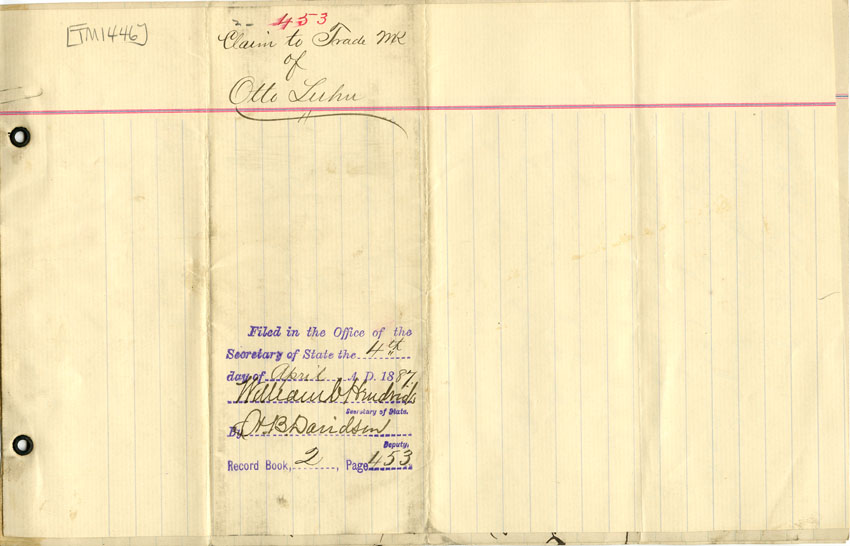 [TM1446]
2 - 453
Claim to Trade MK
of
Otto Luhn
Filed in the Office of the
Secretary of State the 4th
day of April A. D. 1887
William C Hendricks
Secretary of State.
By H.B. Davidson
Deputy.
Record Book, 2, Page 453